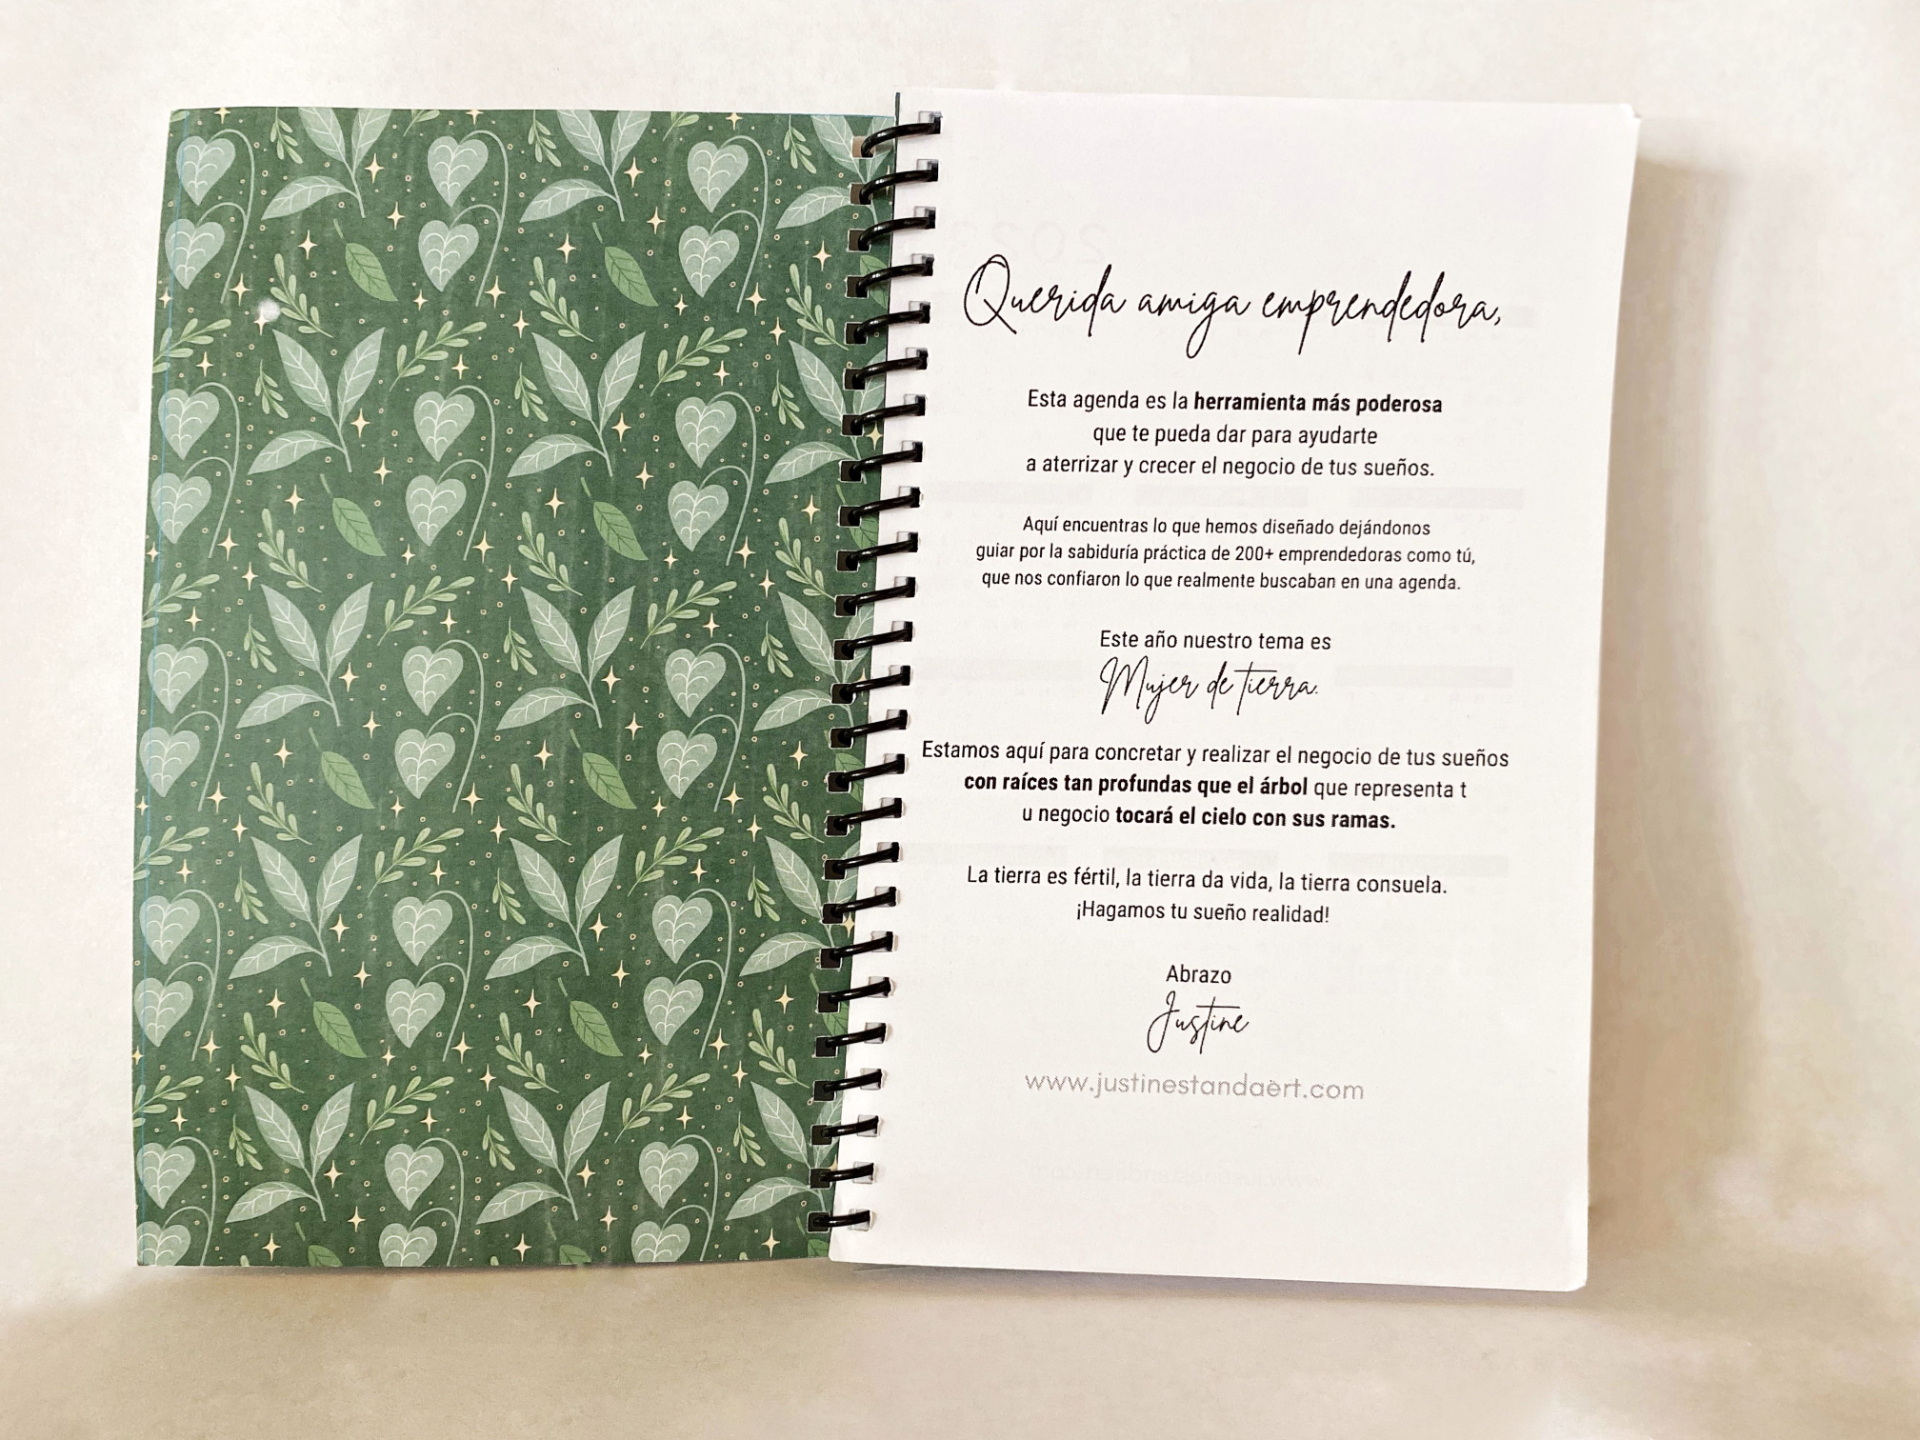 Querida amiga emprendedora,
Esta agenda es la herramienta más poderosa
que te pueda dar para ayudarte
a aterrizar y crecer el negocio de tus sueños.
Aquí encuentras lo que hemos diseñado dejándonos
guiar por la sabiduría práctica de 200+ emprendedoras como tú,
que nos confiaron lo que realmente buscaban en una agenda.
Este año nuestro tema es
Mujer de tierra.
Estamos aquí para concretar y realizar el negocio de tus sueños
con raíces tan profundas que el árbol que representa t
u negocio tocará el cielo con sus ramas.
La tierra es fértil, la tierra da vida, la tierra consuela.
¡Hagamos tu sueño realidad!
Abrazo
Justine
www.justinestandaert.com